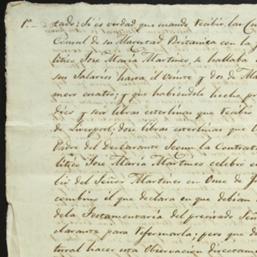 1º tado: Si es verdad que cuando recibio las Cu
Consul de su Magestad Britanica con la
litico José Maria Martinez, se hallaba
sus Salarios hasta el veinte y dos de M
mos cuatro; y que habiendole hecho pr
diez y seis libras esterlinas que recibio
de Liverpool; dos libras esterlinas que
Padre del Declarante Segun la Contrata
litico José Maria Martinez celebró e
lic del Señor Martinez en Once de J
combino el que declara en que debian
dela Testamentaria del precitado Señ
clarante para Ynformarla; pero que d
tural hacer esta Observacion directame